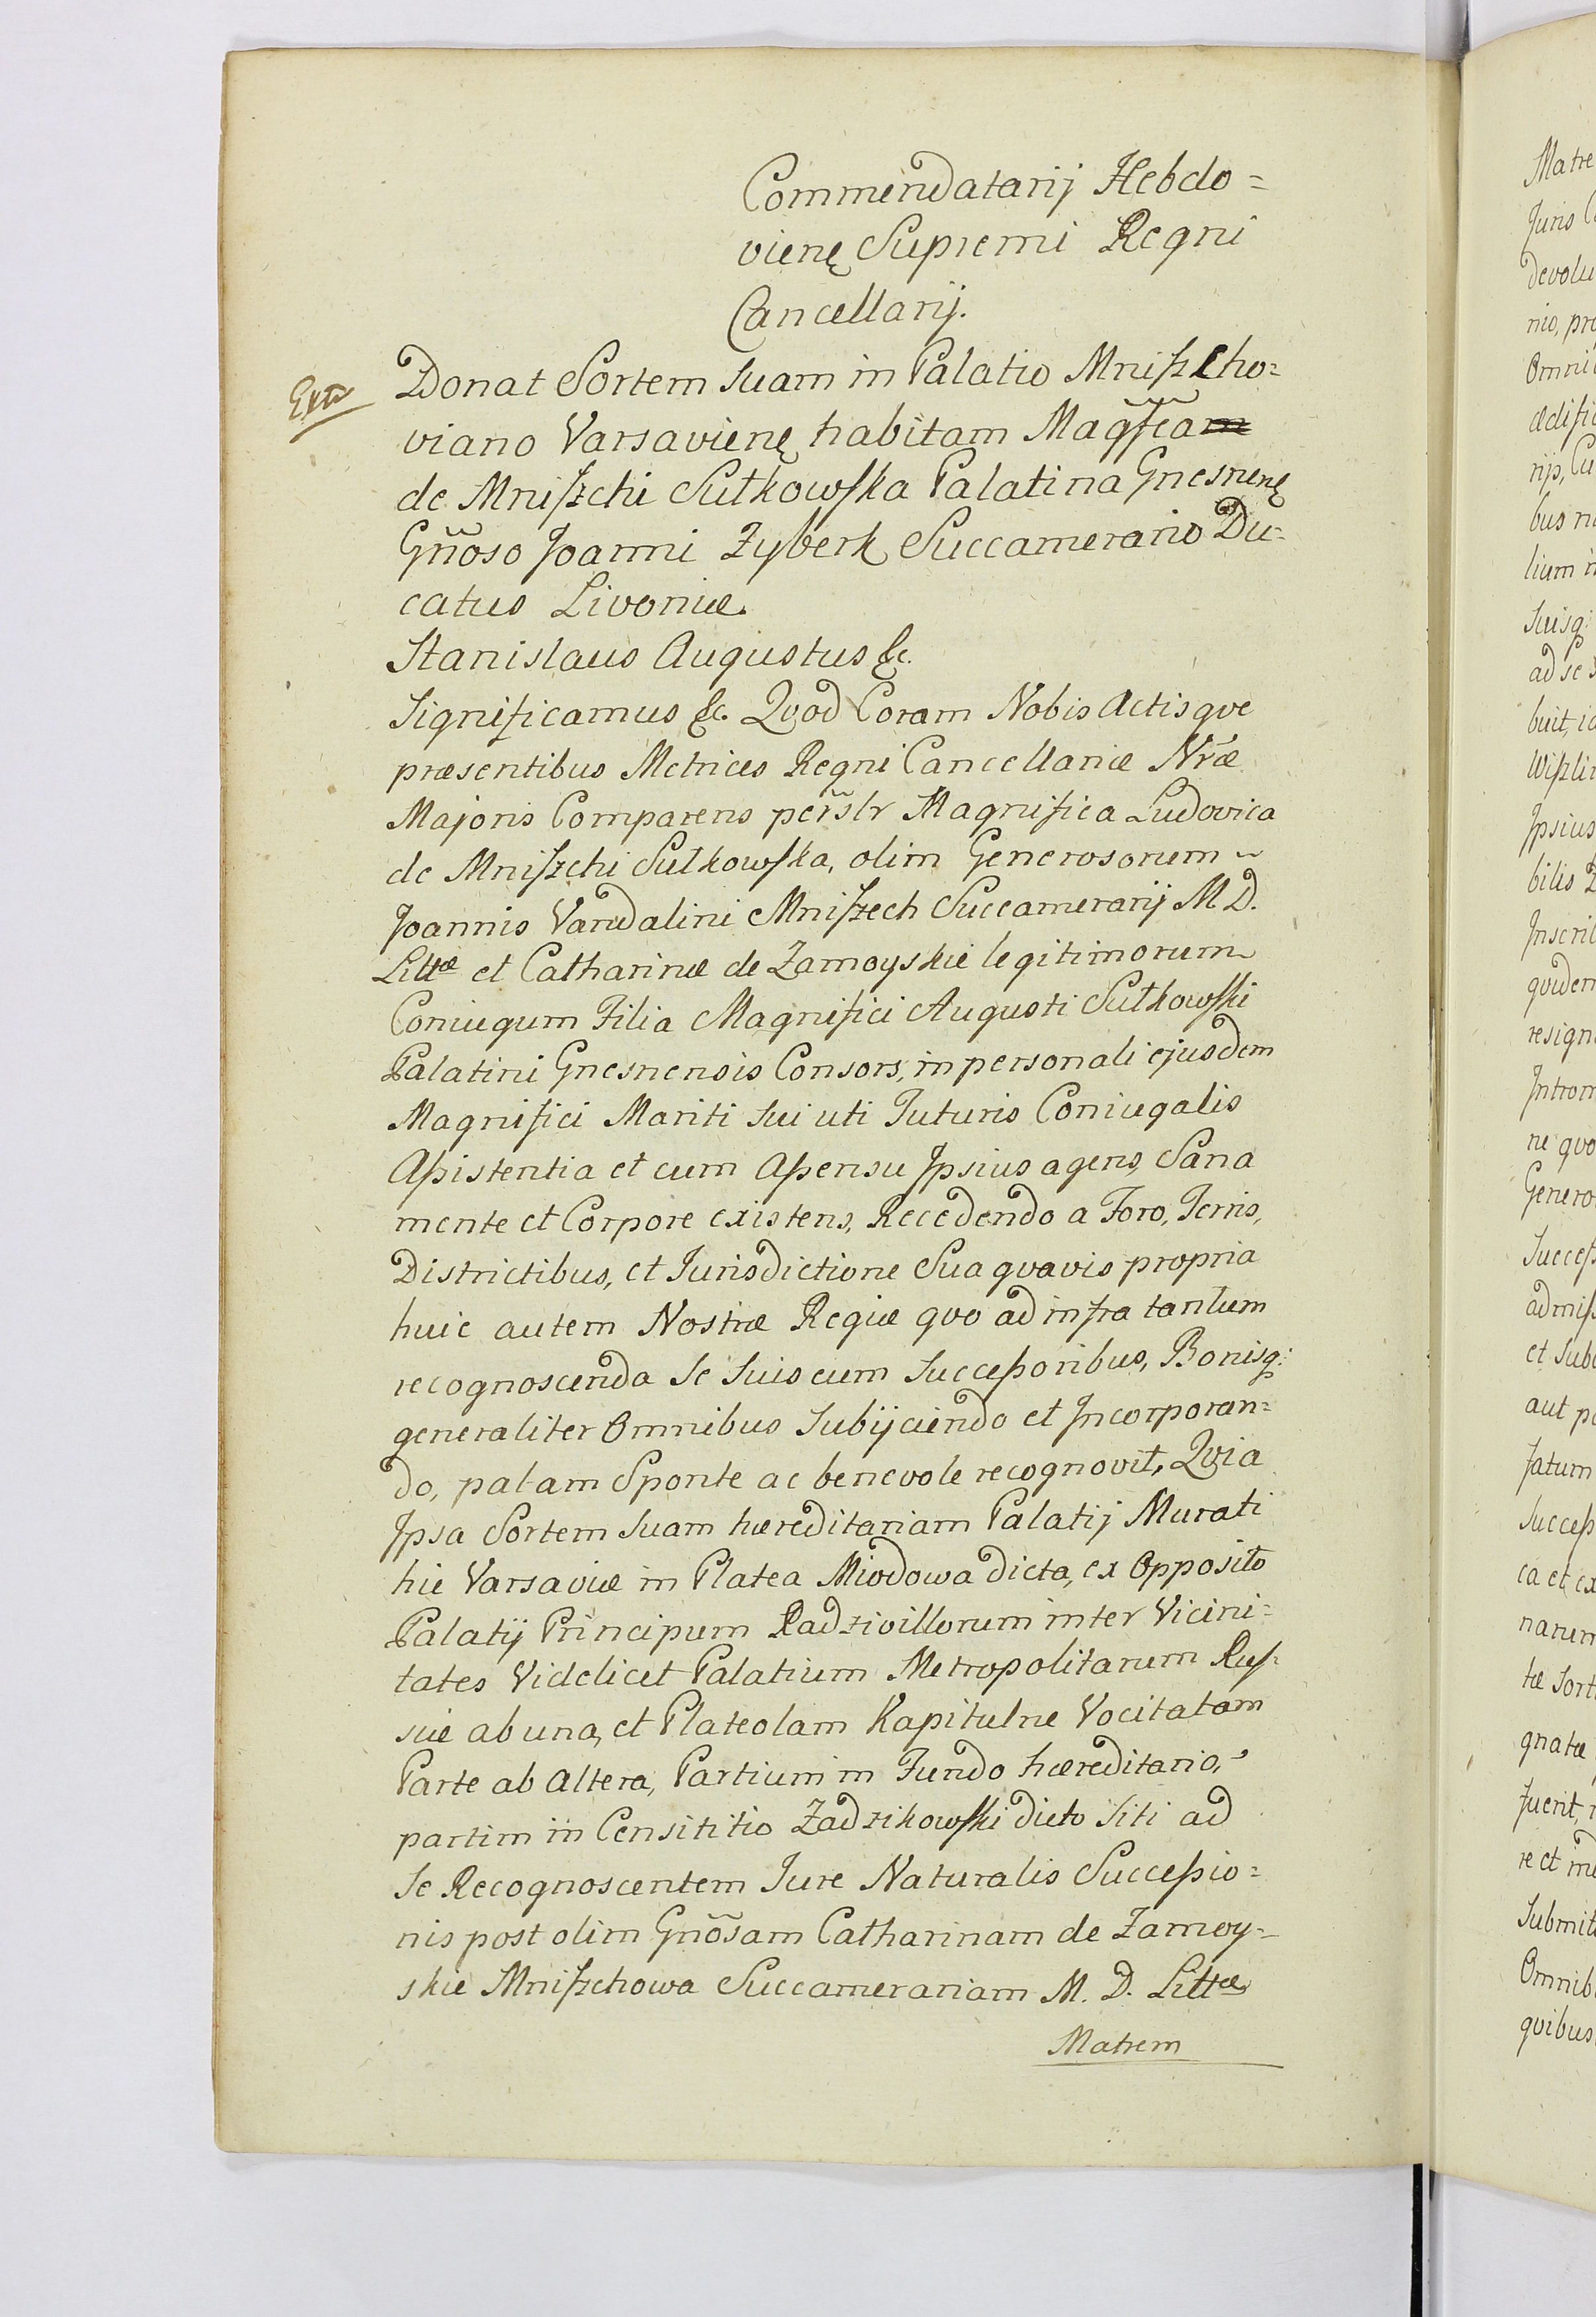 Commendatarij Hebdo=
vienę Supremi Regni
Cancellarij.
Extr
Donat Sortem Suam in Palatio Mniszcho=
viano Varsavienę habitam Mag̃fca
de Mniszchi Sułkowska Palatina Gnesnenę
Gn̄oso Joanni Zyberk Succamerario Du=
catus Livoniæ.
Stanislaus Augustus &c.
Significamus &c. Qvod Coram Nobis Actisqve
præsentibus Metrices Regni Cancellariæ Nr̃æ
Majoris Comparens per̃slr Magnifica Ludovica
de Mniszchi Sułkowska, olim Generosorum ~
Joannis Vandalini Mniszech Succamerarij M D.
Littæ et Catharinæ de Zamoyskie legitimorum
Coniugum Filia Magnifici Augusti Sułkowski
Palatini Gnesnensis Consors, in personali ejusdem
Magnifici Mariti Sui uti Tutoris Coniugalis
Aßistentia et cum Aßensu Ipsius agens, Sana
mente et Corpore existens, Recedendo a Foro, Terris,
Districtibus, et Jurisdictione Sua qvavis propria
huic autem Nostræ Regiæ qvo ad infra tantum
recognoscenda Se Suis cum Succeßoribus, Bonisq:
generaliter Omnibus Subijciendo et Incorporan=
do, palam Sponte ac benevole recognovit, Qvia
Ipsa Sortem Suam hæreditariam Palatij Murati
hic Varsaviæ in Platea Miodowa dicta, ex Opposito
Palatij Principum Radzivillorum inter Vicini=
tates Videlicet Palatium Metropolitanum Rus=
siæ ab una, et Plateolam Kapitulne Vocitatam
Parte ab Altera, Partium in Fundo hæreditario,
partim in Censititio Zadzikowski dicto Siti ad
Se Recognoscentem Jure Naturalis Succeßio=
nis post olim Gnõsam Catharinam de Zamoy=
skie Mniszchowa Succamerariam M. D. Littæ
Matrem